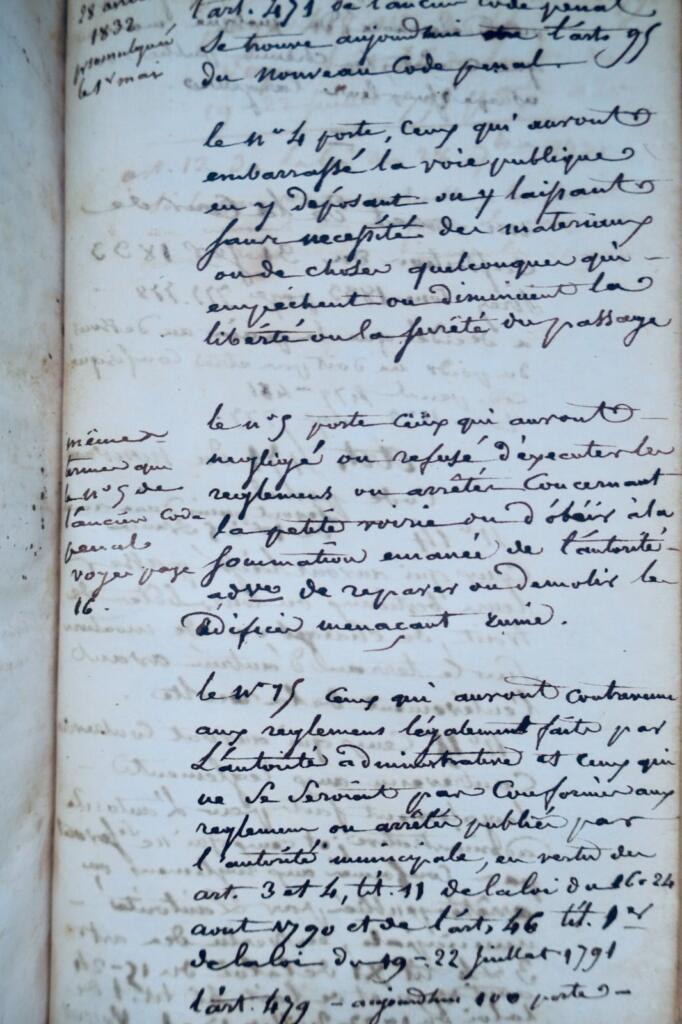 28 avril
1832
promulgué
le 1er mai
l'art. 471 de l'ancien Code penal
se trouve aujourdhui l'art. 95
du nouveau Code penal.
le n° 4 porte, Ceux qui auront
embarrassé la voie publique
en y deposant ou y laissant
sans necessité des materiaux
ou de choses quelconques qui -
empêchent ou diminuent la
liberté ou la sureté du passage
le n° 5 porte Ceux qui auront -
negligé ou refusé d'éxecuter les
reglemens ou arrêtés Concernant
la petite voirie ou d'obéir à la
sommation emanée de l'autorité -
adve de reparer ou demolir les
Edifices menacant ruine.
même
termes que
le n° 5 de
l'ancien Code
penal
voyez page
16.
le N° 15 Ceux qui auront contrevenu
aux reglemens légalement faits par
L'autorité administrative et Ceux qui
ne Se Seroient pas Conformés aux
reglemens ou arrêtés publiés par
l'autorité municipale, en vertu des
art. 3 et 4, tit. 11 de la loi du 16-24
aout 1790 et de l'art. 46 tit. 1er
de la loi du 19-22 juillet 1791
l'art. 479 - aujourdhui 100 porte -